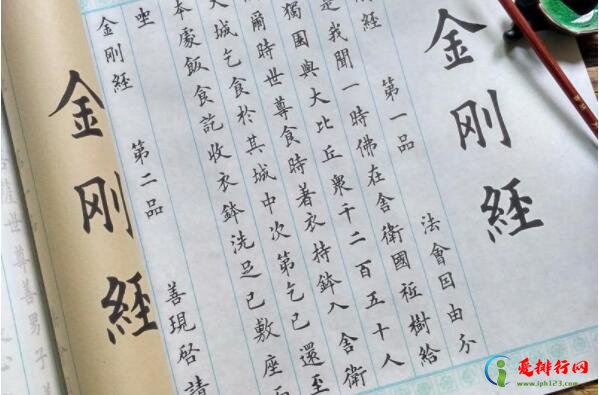 金刚經
刚經 第一品 法會因由分
是我聞一時佛在舍衛國祗樹給
獨園與大比丘衆千二百五十人
爾時世尊食時著衣持鉢入舍衛
大城乞食於其城中次第乞已還至
本處飯食訖收衣鉢洗足已敷座而
坐
金刚經 第二品 善現啓請
金刚經
薩世尊善男子
爱排行网
www.iph123.com